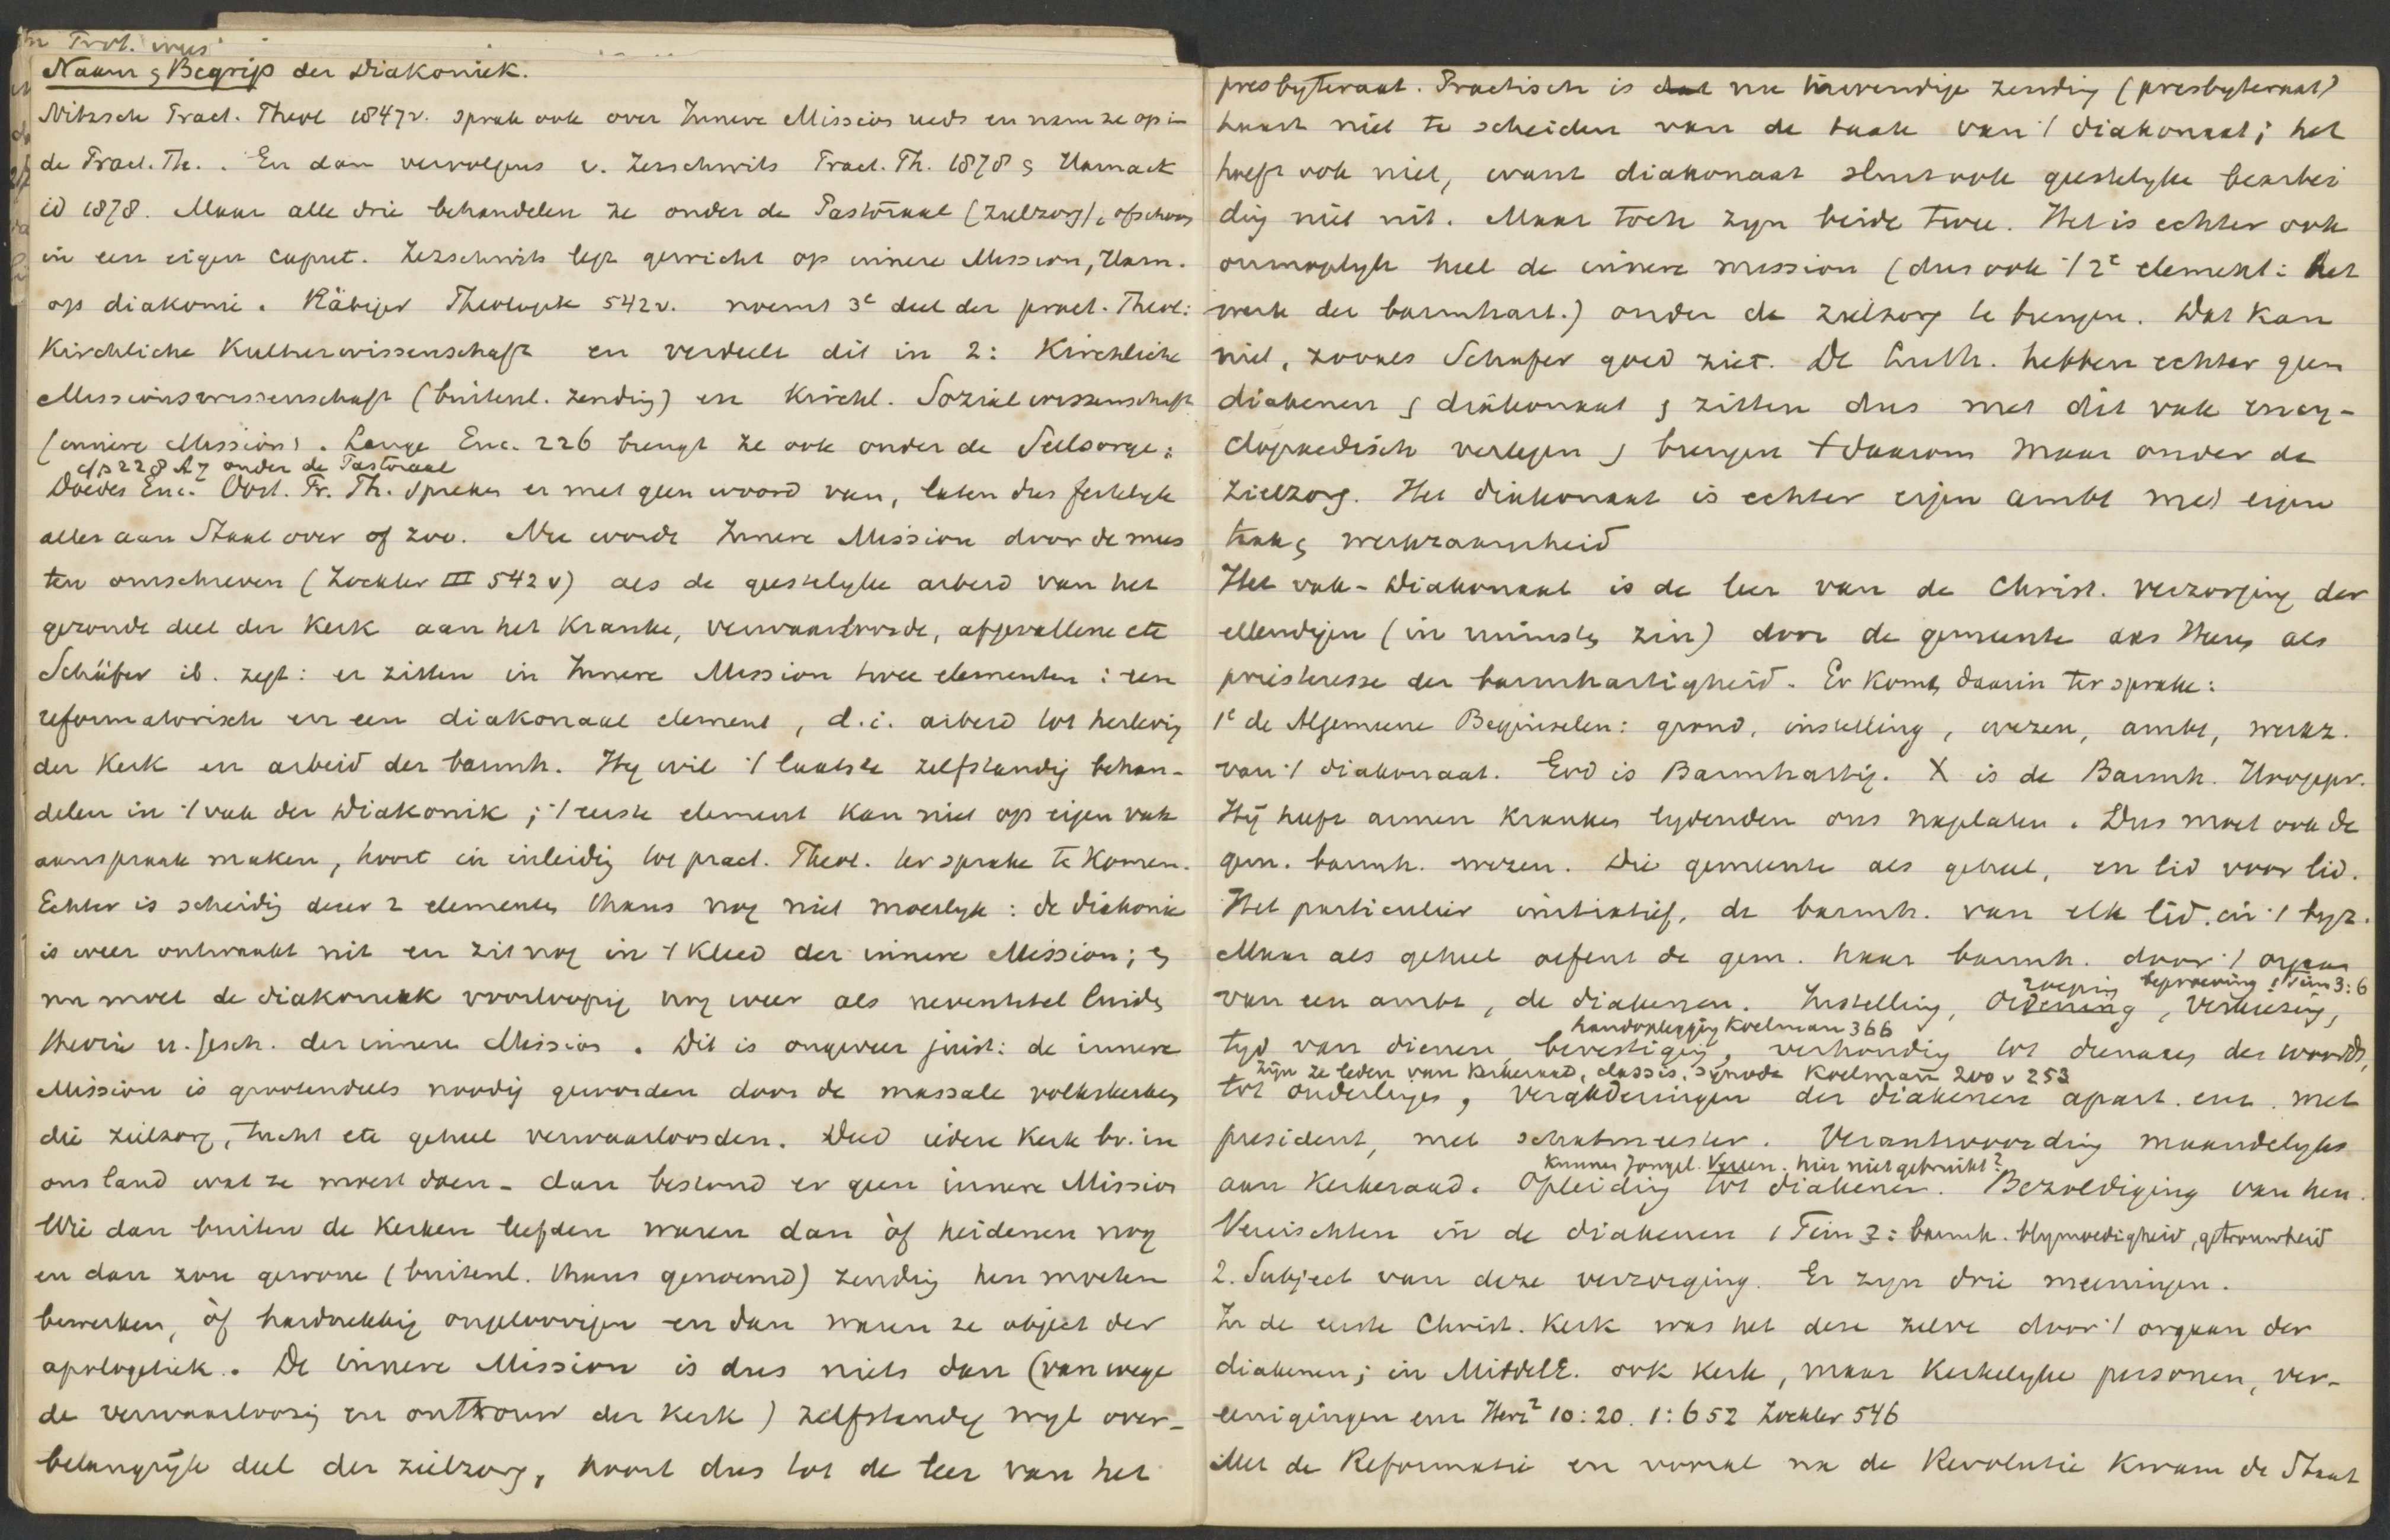 Naam & Begrip der Diakoniek.
Nitzsch Pract. Theol 1847v. sprak ook over Innere Mission reeds en nam ze op in
de Pract. Th. . En dan vervolgens v. Zezschwits Pract. Th. 1878 & Harnack
id 1878. Maar alle drie behandelen ze onder de Pastoraal (zielzorg), ofschoon
in een eigen caput. Zezschwits legt gewicht op innere Mission, Harn.
op diakonie. Räbiger Theologik 542v. noemt 3e deel der pract. Theol:
Kirchliche Kulturwissenschaft en verdeelt dit in 2: Kirchliche
Missionswissenschaft (buitenl. zending) en Kirchl. Sozialwissenschaft
(innere Mission). Lange Enc. 226 brengt ze ook onder de Seelsorge;
cf p 228 A 7 onder de Pastoraal
Doedes Enc. Oost. Pr. Th. spreken er met geen woord van, laten dus feitelyk
alles aan Staat over of zoo. Nu wordt Innere Mission door de mees
ten omschreven (Zockler III 542v) als de geestelyke arbeid van het
gezonde deel der Kerk aan het Kranke, verwaarloosde, afgevallene etc
Schäfer ib. zegt: er zitten in Innere Mission twee elementen: een
reformatorisch en een diakonaal element, d.i. arbeid tot herlevig
der Kerk en arbeid der barmh. Hy wil 't laatste zelfstandig behan-
delen in 't vak der Diakonik; 't eerste element kan niet op eigen vak
aanspraak maken, hoort in inleidig tot pract. Theol. ter sprake te komen.
Echter is scheidig dezer 2 elementen thans nog niet moeilyk: de diakonie
is weer ontwaakt uit en zit nog in 't Kleed der innere Mission; &
nu moet de diakoniek voorloopig nog weer als neventitel luiden
theorie u. gesch. der innere Mission. Dit is ongeveer juist: de innere
Mission is grootendeels noodig geworden door de massale volkskerken
die zielzorg, tucht etc geheel verwaarloosden. Deed iedere Kerk bv. in
ons land wat ze moest doen - dan bestond er geen innere Mission
Wie dan buiten de Kerken leefden waren dan òf heidenen nog
en dan zou gewone (buitenl. thans genoemd) zending hen moeten
bewerken, òf hardnekkig ongeloovigen en dan waren ze object der
apologetiek. De innere Mission is dus niets dan (van wege
de verwaarloozig en ontrouw der Kerk) zelfstandig wyl over-
belangrijk deel der zielzorg, hoort dus tot de leer van het
presbyteraat. Practisch is nu inwendige zending (presbyteraat)
haast niet te scheiden van de taak van 't diakonaat; het
hoeft ook niet, want diakonaat sluit ook geestelyke bearbei
dig niet uit. Maar toch zyn beide twee. Het is echter ook
onmogelyk heel de innere mission (dus ook 't 2e element: het
werk der barmhart.) onder de zielzorg te brengen. Dat kan
niet, zooals Schafer goed ziet. De Luth. hebben echter geen
diakenen & diakonaat & zitten dus met dit vak ency-
clopaedisch verlegen & brengen 't daarom maar onder de
zielzorg. Het diakonaat is echter eigen ambt met eigen
taak & werkzaamheid
Het vak - Diakonaat is de leer van de Christ. verzorging der
ellendigen (in ruimste zin) door de gemeente des Heeren als
priesteresse der barmhartigheid. Er komt daarin ter sprake:
1e de Algemeene Beginselen: grond, instelling, wezen, ambt, werkz.
van 't diakonaat. God is Barmhartig. X is de Barmh. Hoogepr.
Hij heeft armen kranken lydenden ons nagelaten. Dus moet ook de
gem. barmh. wezen. Die gemeente als geheel, en lid voor lid.
Het particulier initiatief, de barmh. van elk lid. in 't byz.
Maar als geheel oefent de gem. haar barmh. door 't orgaan
roeping beproeving 1 Tim 3:6
van een ambt, de diakenen. Instelling, ordening, verkiezing,
handoplegging Koelman 366
tyd van dienen, bevestiging, verhoudig tot dienaren des woords,
zijn ze leden van kerkeraad, classis, synode Koelman 200 v 253
tot ouderlingen, vergaderingen der diakenen apart. enz. met
president, met schatmeester. Verantwoording maandelyks
Kunnen Jongel. Vereen. hier niet gebruikt?
aan Kerkeraad. Opleiding tot diakenen. Bezoldiging van hen.
Vereischten in de diakenen 1 Tim 3: barmh. blymoedigheid, getrouwheid
2. Subject van deze verzorging. Er zyn drie meeningen.
In de eerste Christ. Kerk was het deze zelve door 't orgaan der
diakenen; in MiddelE. ook Kerk, maar kerkelyke personen, ver-
eenigingen enz Herz² 10:20. 1:652 Zockler 546
Met de Reformatie en vooral na de Revolutie kwam de Staat